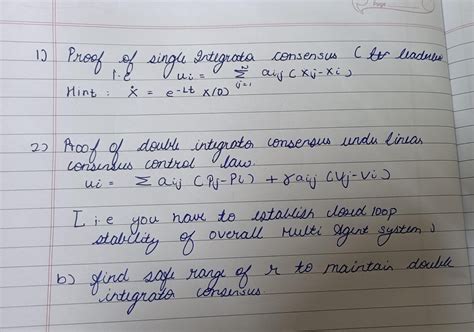 1) Proof of single Integrator consensus ( for leaderless
i.e ui = Σ aij ( xj - xi )
j=1
Hint : ẋ = e-Lt x(0)
2) Proof of double integrator consensus under linear
consensus control law.
ui = Σ aij ( Pj - Pi ) + γ aij ( Vj - Vi )
[ i.e you have to establish closed loop
stability of overall Multi Agent system )
b) find safe range of r to maintain double
integrator consensus